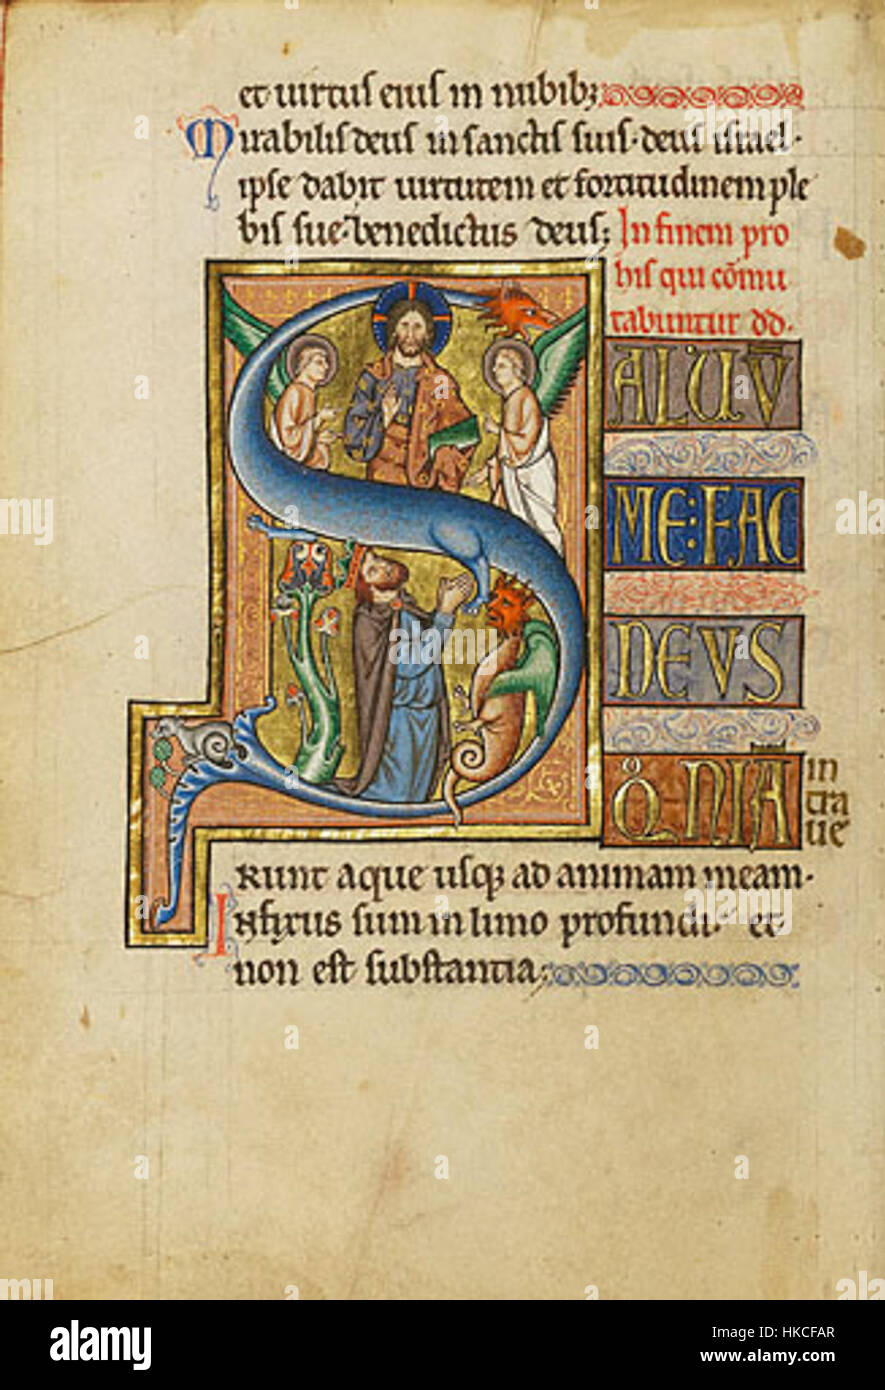 et uirtus eius in nubibꝫ
Mirabilis deus in sanctis suis·deus israel·
ipse dabit uirtutem et fortitudinem ple
bis sue·benedictus deus; In finem pro
bis qui cōmu
tabuntur dd·
SALUV̄
ME:FAC
DEVS
Q̊NIĀ in
tra
ue
RUNT aque usqꝫ ad animam meam·
Infixus sum in limo profundi· et
non est substantia;
alamy
Image ID: HKCFAR
www.alamy.com